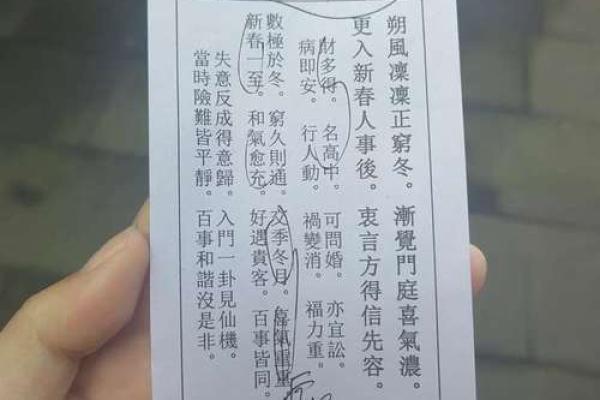 朔風凜凜正窮冬。漸覺門庭喜氣濃。
更入新春人事後。衷言方得信先容。
財多得。名高中。可問婚。亦宜訟。
病即安。行人動。禍變消。福力重。
數極於冬。窮久則通。交季冬月。喜氣重重
新春一至。和氣愈充。好遇貴客。百事皆同。
失意反成得意歸。入門一卦見仙機。
當時險難皆平靜。百事和諧沒是非。